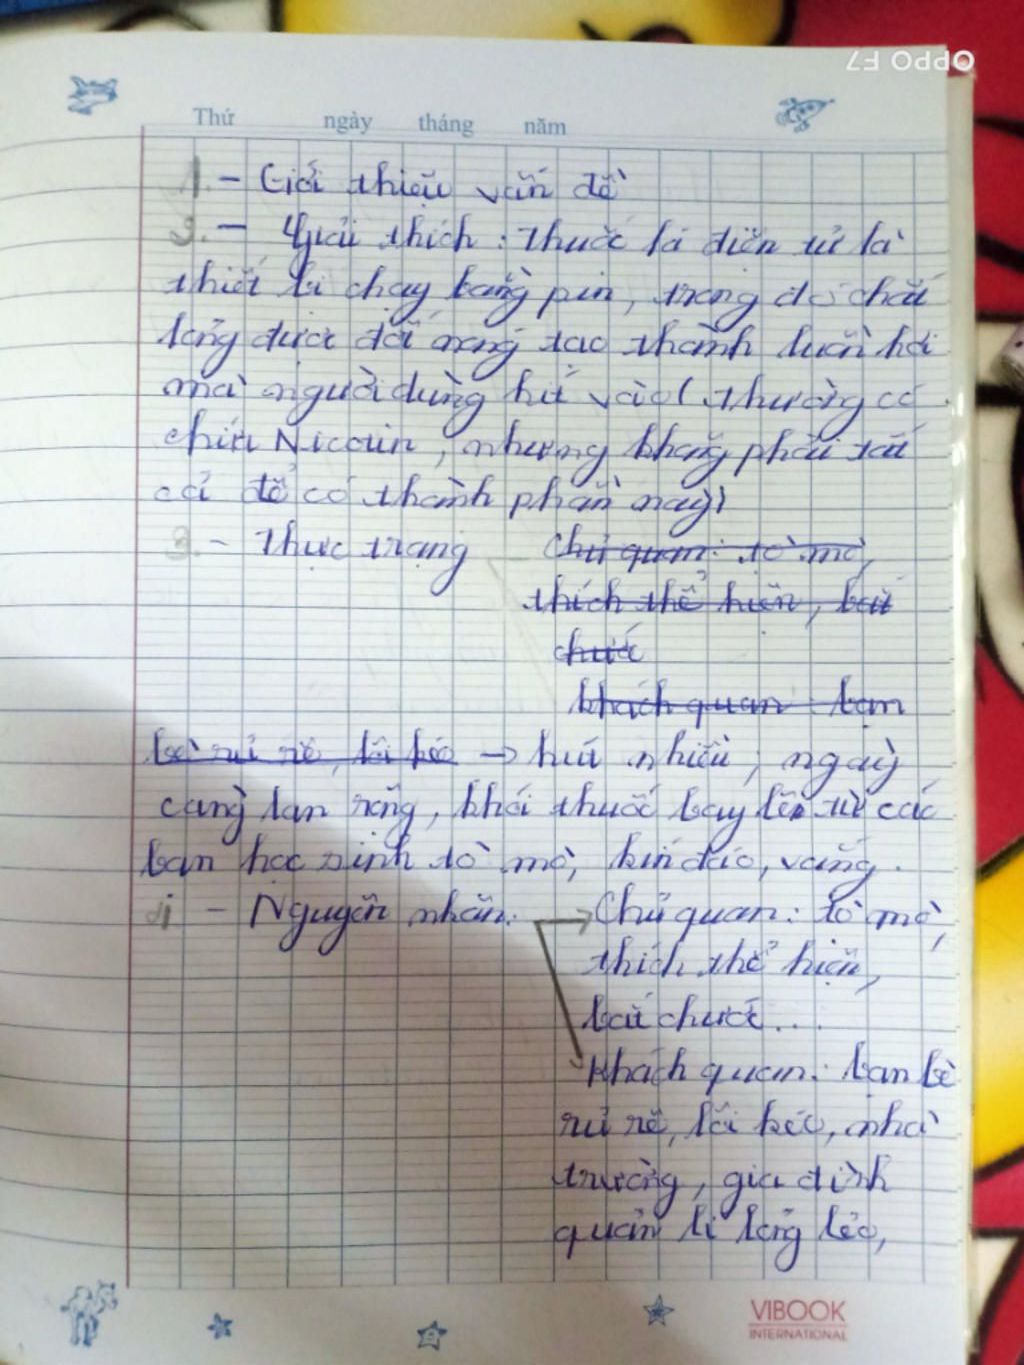 OPPO F7
Thứ ngày tháng năm
1. - Giới thiệu vấn đề
2. - Giải thích: Thuốc lá điện tử là
thiết bị chạy bằng pin, trong đó chất
lỏng được đốt nóng tạo thành luồn hơi
mà người dùng hít vào (thường có
chứa Nicotin, nhưng không phải tất
cả để có thành phần này)
3. - Thực trạng Chủ quan: tò mò,
thích thể hiện, bắt
chướ
khách quan bạn
bè rủ rê, lôi kéo → hút nhiều, ngày
càng lan rộng, khói thuốc bay lên từ các
bạn học sinh tò mò, kín đáo, vắng.
4 - Nguyên nhân: Chủ quan: tò mò,
thích thể hiện,
bắt chước...
Khách quan: bạn bè
rủ rê, lôi kéo, nhà
trường, gia đình
quản lí lỏng lẻo,
VIBOOK
INTERNATIONAL